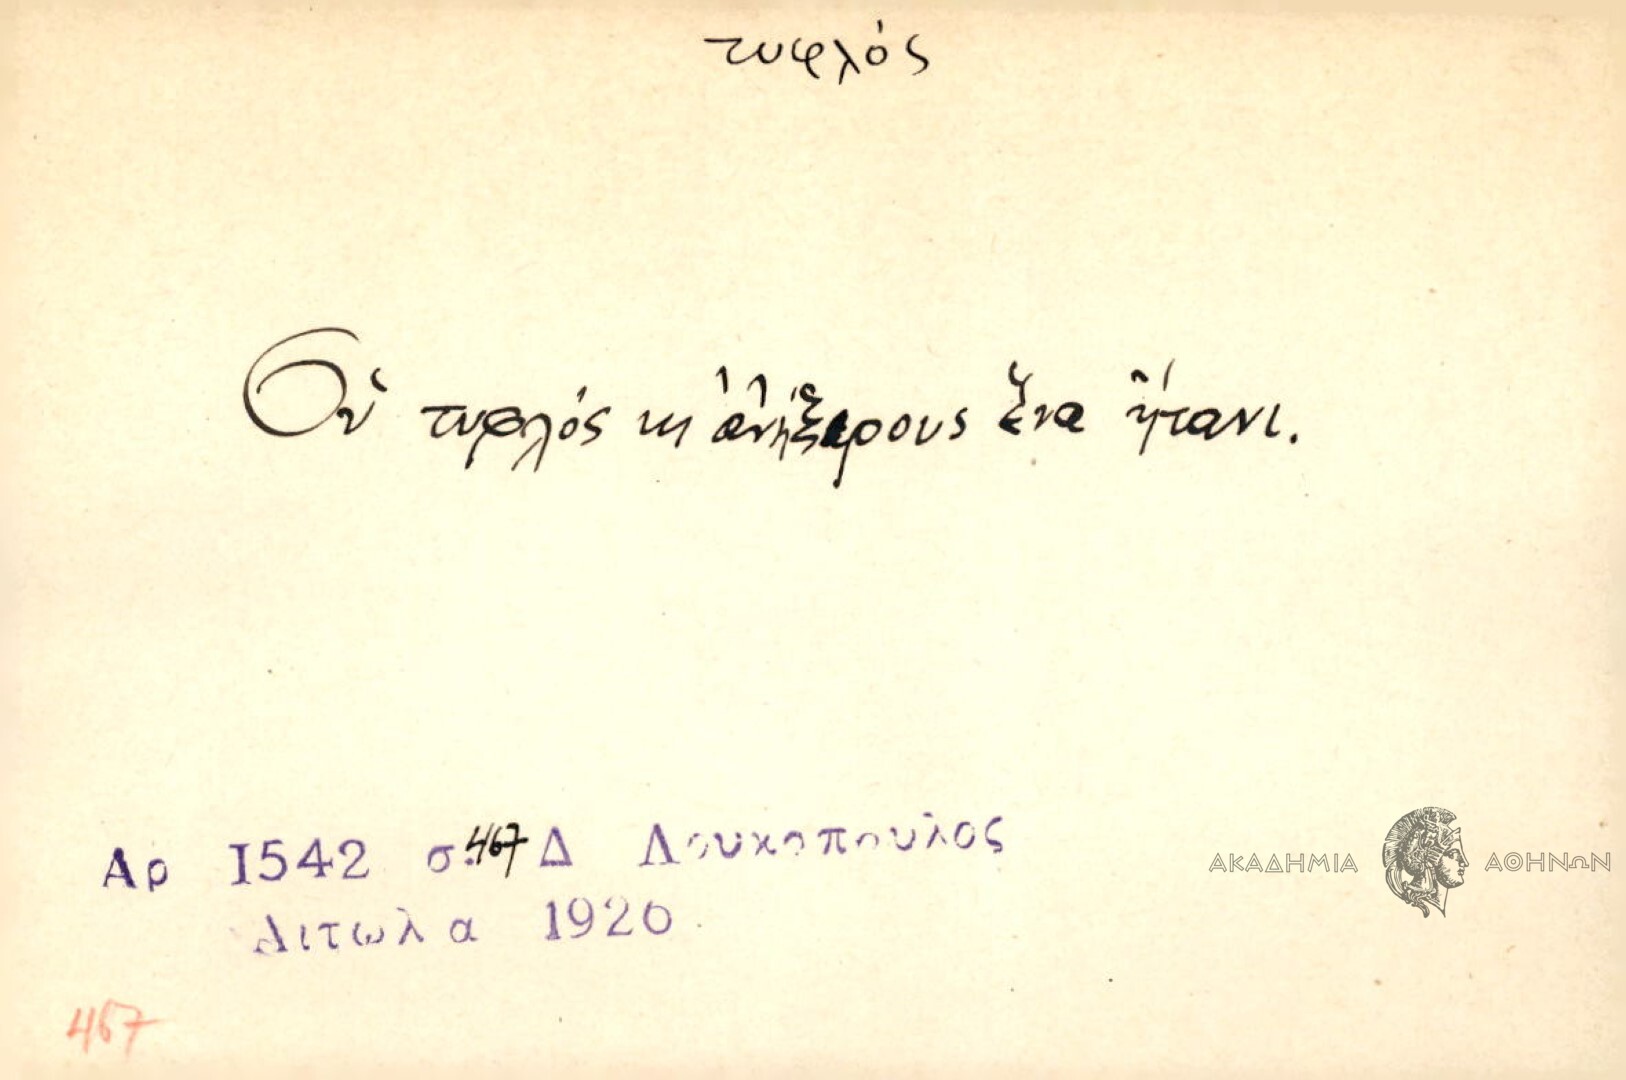 τυφλός
Οὑ τυφλός κι ἀνήξερους ἕνα ἤτανι.
Αρ 1542 σ. 467 Δ Λουκοπουλος
Αιτωλ α 1920
467
ΑΚΑΔΗΜΙΑ ΑΘΗΝΩΝ